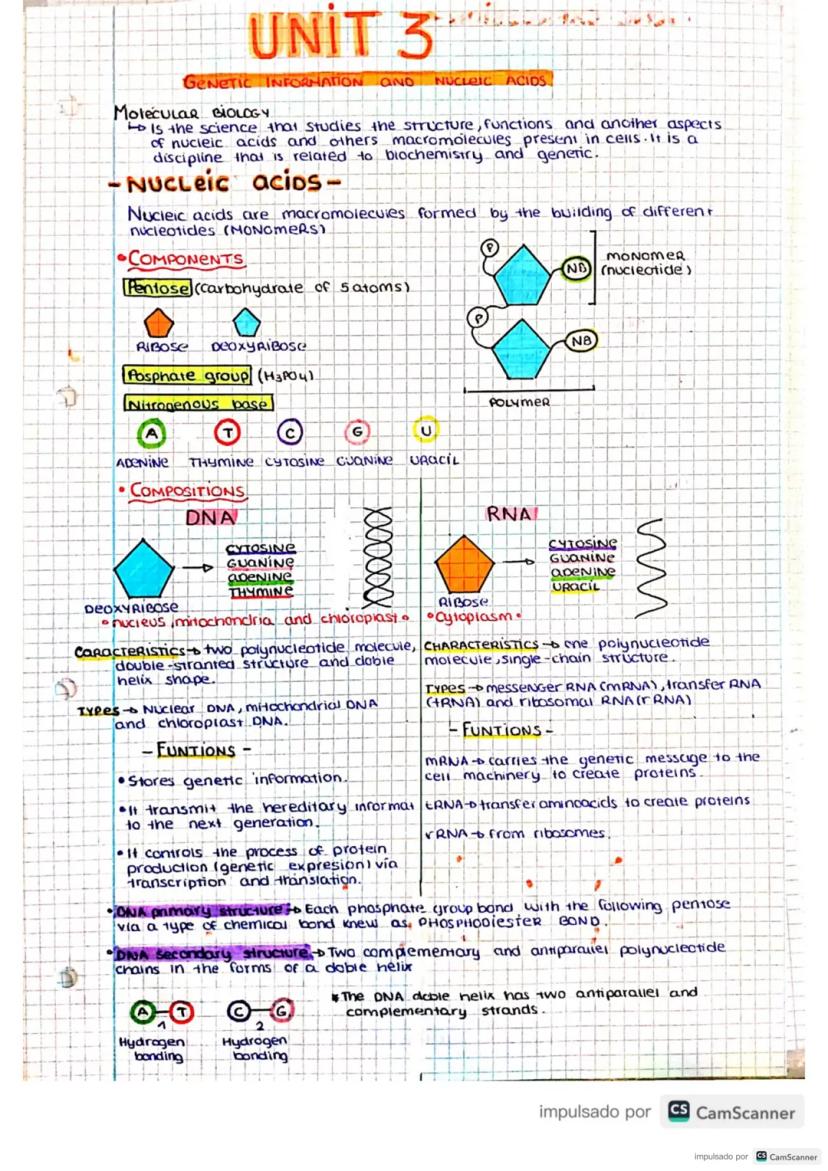 UNIT 3
GENETIC INFORMATION AND NUCLEIC ACIDS
Molecular BIOLOGY
↳ Is the science that studies the structure, functions and another aspects
of nucleic acids and others macromolecules present in cells. It is a
discipline that is related to biochemistry and genetic.
- NUCLEIC ACIDS -
Nucleic acids are macromolecules formed by the building of different
nucleotides (MONOMERS)
• COMPONENTS
Pentose (carbohydrate of 5 atoms)
RIBOSE DEOXYRIBOSE
Posphate group (H3PO4)
Nitrogenous base
P
NB
MONOMER
(nucleotide)
P
NB
POLYMER
A T C G U
ADENINE THYMINE CYTOSINE GUANINE URACIL
• COMPOSITIONS
DNA
CYTOSINE
GUANINE
ADENINE
THYMINE
DEOXYRIBOSE
• nucleus, mitochondria and chloroplast •
CARACTERISTICS → two polynucleotide molecule,
double-stranted structure and doble
helix shape.
TYPES → Nuclear DNA, mitochondrial DNA
and chloroplast DNA.
- FUNTIONS -
• Stores genetic information.
• It transmit the hereditary informat
to the next generation.
• It controls the process of protein
production (genetic expresion) via
transcription and thanslation.
RNA
CYTOSINE
GUANINE
ADENINE
URACIL
RIBOSE
• Cytoplasm •
CHARACTERISTICS → one polynucleotide
molecule, single-chain structure.
TYPES → messenger RNA (mRNA), transfer RNA
(tRNA) and ribosomal RNA (rRNA)
- FUNTIONS -
mRNA → carries the genetic message to the
cell machinery to create proteins.
tRNA → transfer aminoacids to create proteins
rRNA → from ribosomes.
• DNA primary structure → Each phosphate group bond with the following pentose
via a type of chemical bond knew as, PHOSPHODIESTER BOND.
• DNA secondary structure → Two complementary and antiparallel polynucleotide
chains in the forms of a doble helix
A T
1
Hydrogen
bonding
C G
2
Hydrogen
bonding
* The DNA doble helix has two antiparallel and
complementary strands.
impulsado por CS CamScanner
impulsado por CS CamScanner